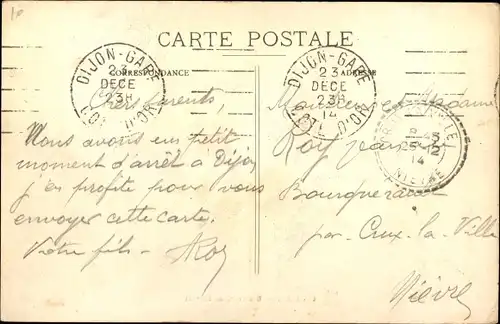 10
CARTE POSTALE
CORRESPONDANCE
ADRESSE
DIJON-GARE
23
DECE
23H
CÔTE D'OR
DIJON-GARE
23
DECE
23H
14
CÔTE D'OR
8 45
25-12
14
NIEVRE
Chers parents,
Nous avons un petit
moment d'arrêt à Dijon
j'en profite pour vous
envoyer cette carte.
Votre fils - Roy
Monsieur et Madame
Roy
par Crux-la-Ville
Nièvre